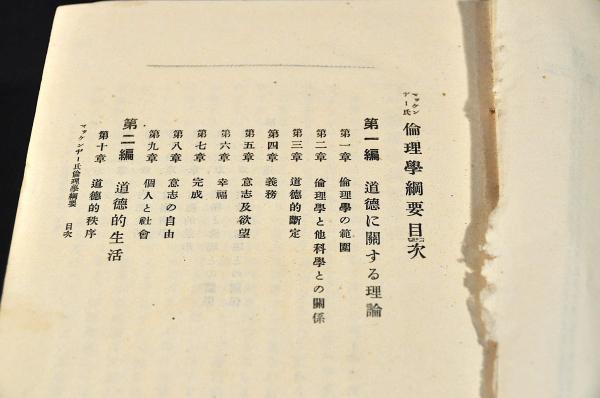 マッケンヂー氏 倫理學綱要目次
第一編 道德に關する理論
第一章 倫理學の範圍
第二章 倫理學と他科學との關係
第三章 道德的斷定
第四章 義務
第五章 意志及欲望
第六章 幸福
第七章 完成
第八章 意志の自由
第九章 個人と社會
第二編 道德的生活
第十章 道德的秩序
マッケンヂー氏倫理學綱要 目次